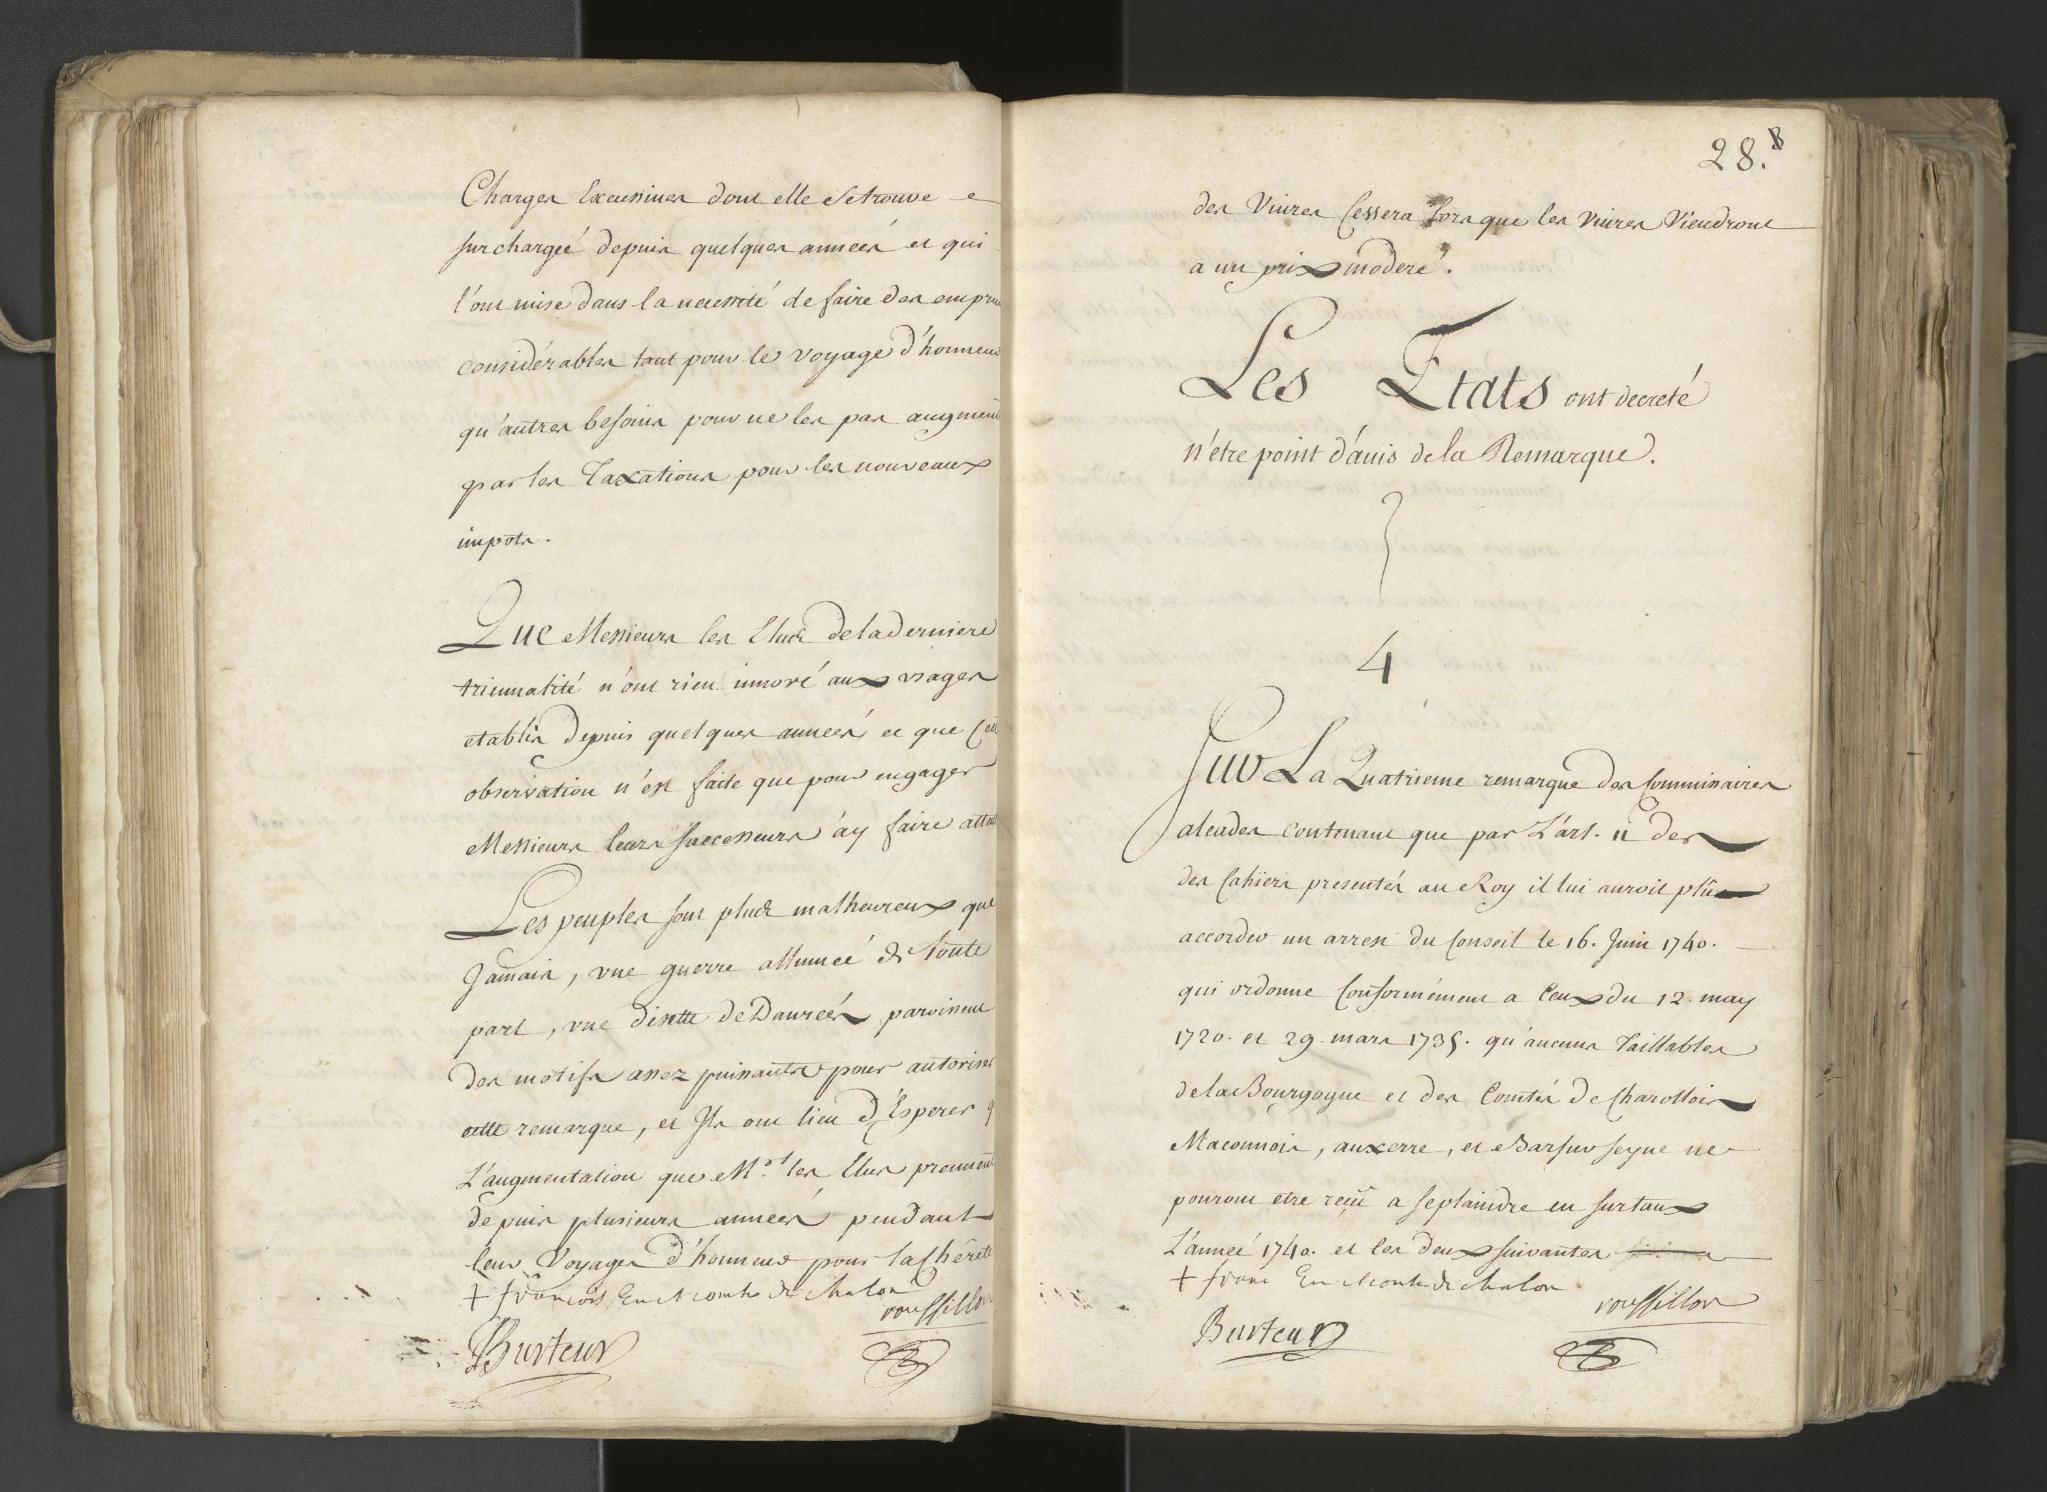 Charges Excessives dont elle Se trouve
surchargeé depuis quelques anneés et qui
l'ont mise dans la necessité de faire des empru
considérables tant pour le voyage d'honneur
qu'autres besoins pour ne les pas augment
par les Taxations pour les nouveaux
impots.
Que Messieurs les Elus de la derniere
triennalité n'ont rien innové aux usages
etablis depuis quelques anneés et que Cett
observation n'est faite que pour engager
Messieurs leurs Successeurs a'y faire atten
Les peuples sont plus malheureux que
Jamais, une guerre allumeé de toute
part, une disette de Danreés paroissent
des motifs assez puissants pour autoriser
cette remarque, et Ils ont lieu d'Esperer q
L'augmentation que Mrs. les Elus prennent
depuis plusieurs anneés pendant
leur Voyages d'honneur pour la Chêrété
+ françois Ev. et comte de Chalon
roussillon
Burteur
28.
des Vivres Cessera Lors que les Vivres Viendront
a un prix moderé.
Les Etats ont decreté
n'être point d'avis de la Remarque.
4
Sur La Quatrieme remarque des Commissaires
alcades contenant que par L'art. 11 des
des Cahiers presentés au Roy il lui auroit plû
accorder un arrest du Conseil le 16. Juin 1740.
qui ordonne Conformément a Ceux du 12 may
1720. et 29. mars 1735. qu'aucuns Taillables
de la Bourgogne et des Comtés de Charollois
Maconnois, auxerre, et Bar sur seyne ne
pouront etre reçû a seplaindre en surtaux
L'anneé 1740. et les deux suivantes
+ franc Ev. et comte de chalon
roussillon
Burteur